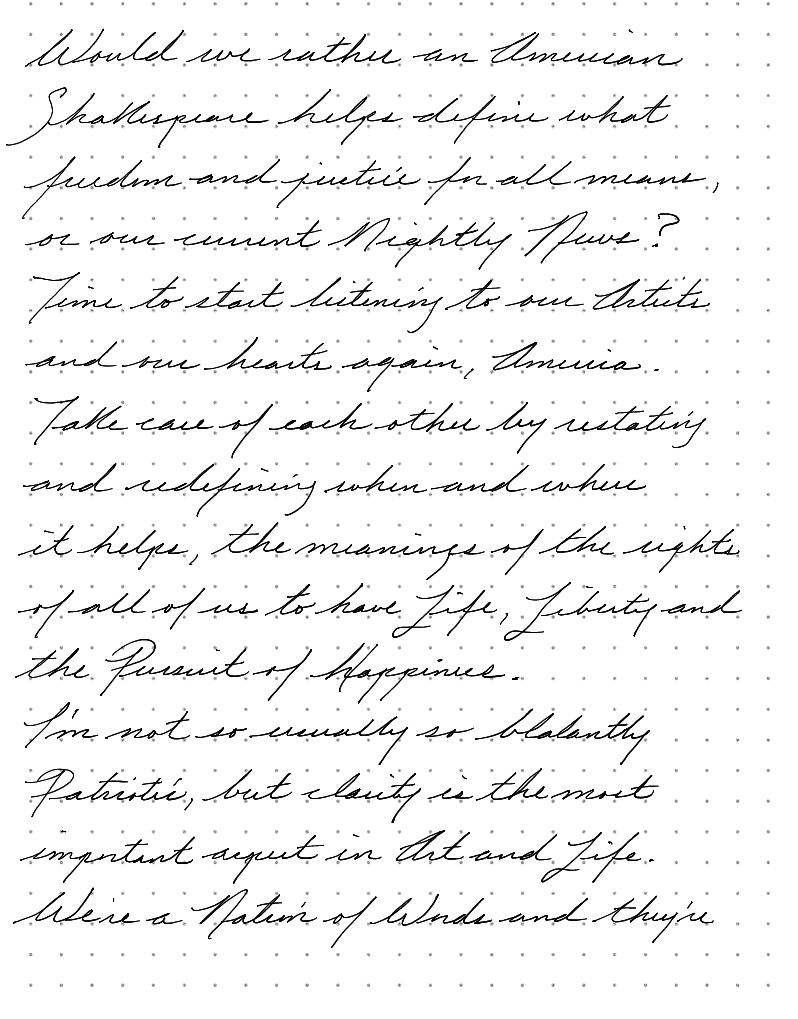 Would we rather an American
Shakespeare helps define what
freedom and justice for all means,
or our current Nightly News?
Time to start listening to our Artists
and our hearts again, America.
Take care of each other by restating
and redefining when and where
it helps, the meanings of the rights
of all of us to have Life, Liberty and
the Pursuit of Happiness.
I'm not so usually so blatantly
Patriotic, but clarity is the most
important aspect in Art and Life.
We're a Nation of Words and they're